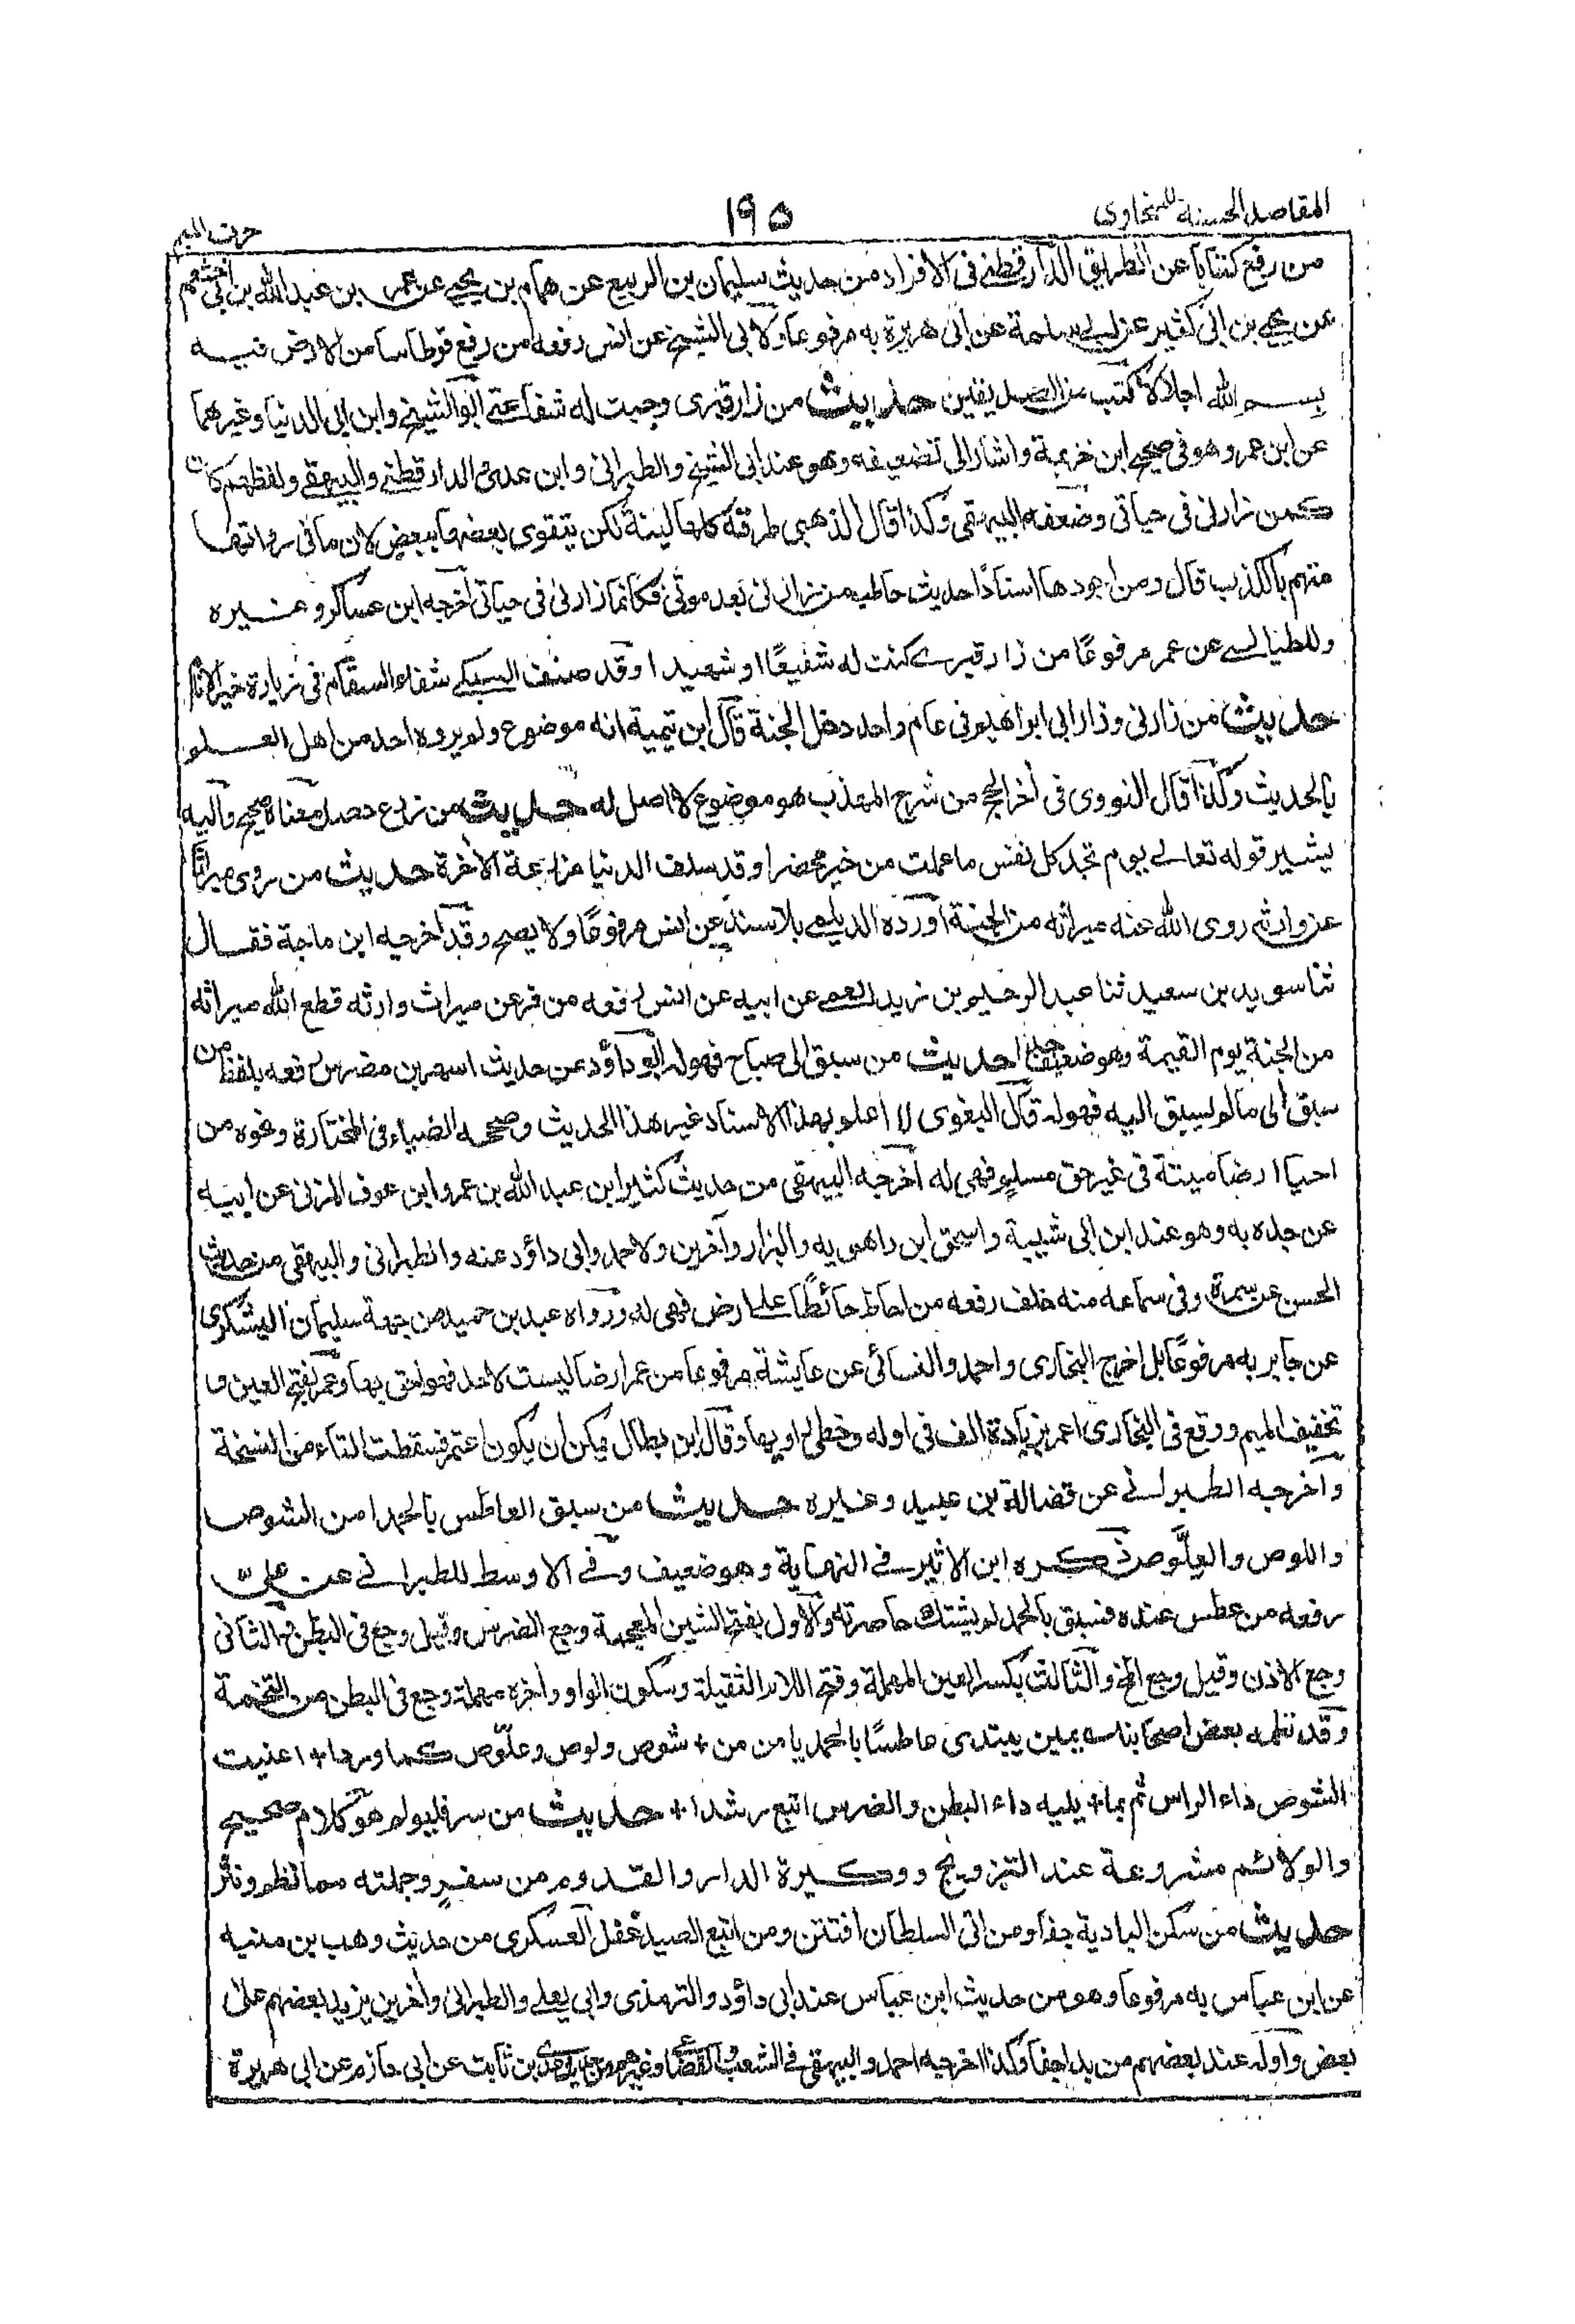 المقاصد الحسنة للسخاوى ۱۹۵ حرف الميم
من رفع كتابا عن الطريق الدارقطنى فى الافراد من حديث سليمان بن الربيع عن همام بن يحيى عن عمر بن عبد الله بن ابى خثعم
عن يحيى بن ابى كثير عن ابى سلمة عن ابى هريرة به مرفوعا ولابى الشيخ عن انس رفعه من رفع قرطاسا من الارض فيه
بسم الله اجلالا كتب من الصديقين حديث من زار قبرى وجبت له شفاعتى ابو الشيخ وابن ابى الدنيا وغيرهما
عن ابن عمر وهو فى صحيح ابن خزيمة واشار الى تضعيفه وهو عند ابى الشيخ والطبرانى وابن عدى والدارقطنى والبيهقى ولفظهم كان
كمن زارنى فى حياتى وضعفه البيهقى وكذا قال الذهبى طرقه كلها لينة لكن يتقوى بعضها ببعض لان ما فى رواتها
متهم بالكذب قال ومن اجودها اسنادًا حديث حاطب من زارنى بعد موتى فكانما زارنى فى حياتى اخرجه ابن عساكر وغيره
وللطيالسى عن عمر مرفوعًا من زار قبرى كنت له شفيعًا او شهيدا وقد صنف السبكى شفاء السقام فى زيارة خير الانام
حديث من زارنى وزار ابى ابراهيم فى عام واحد دخل الجنة قال ابن تيمية انه موضوع ولم يروه احد من اهل العلم
بالحديث وكذا قال النووى فى آخر الحج من شرح المهذب هو موضوع لا اصل له حديث من زرع حصد معناه صحيح واليه
يشير قوله تعالى يوم تجد كل نفس ما عملت من خير محضرا وقد سلف الدنيا مزرعة الآخرة حديث من زوى ميراثًا
عن وارثه زوى الله عنه ميراثه من الجنة اورده الديلمى بلا سند عن انس مرفوعًا ولا يصح وقد اخرجه ابن ماجة فقال
ثنا سويد بن سعيد ثنا عبد الرحيم بن زيد العمى عن ابيه عن انس رفعه من فر عن ميراث وارثه قطع الله ميراثه
من الجنة يوم القيمة وهو ضعيف جدا حديث من سبق الى صباح فهو له ابو داؤد عن حديث اسمر بن مضرس رفعه بلفظ من
سبق الى ما لم يسبق اليه فهو له قال البغوى لا اعلم بهذا الاسناد غير هذا الحديث وصححه الضياء فى المختارة ونحوه من
احيا ارضا ميتة فى غير حق مسلم فهى له اخرجه البيهقى من حديث كثير ابن عبد الله بن عمرو ابن عوف المزنى عن ابيه
عن جده به وهو عند ابن ابى شيبة واسحق ابن راهويه والبزار وآخرين ولاحمد وابى داؤد عنه والطبرانى والبيهقى من حديث
الحسن عن سمرة وفى سماعه منه خلف رفعه من احاط حائطًا على ارض فهى له ورواه عبد بن حميد من جهة سليمان اليشكرى
عن جابر به مرفوعًا بل اخرج البخارى واحمد والنسائى عن عايشة مرفوعا من عمر ارضا ليست لاحد فهو احق بها وعمر بفتح العين و
تخفيف الميم ووقع فى البخارى اعمر بزيادة الف فى اوله وخطئ راويها وقال ابن بطال يمكن ان يكون اعتمر فسقطت التاء من النسخة
واخرجه الطبرانى عن فضالة بن عبيد وغيره حديث من سبق العاطس بالحمد امن الشوص
واللوص والعلّوص ذكره ابن الاثير فى النهاية وهو ضعيف وفى الاوسط للطبرانى عن علىّ
رفعه من عطس عنده فسبق بالحمد لم يشتك خاصرته والاول بفتح الشين المعجمة وجع الضرس وقيل وجع فى البطن والثانى
وجع الاذن وقيل وجع المخ والثالث بكسر العين المهملة وفتح اللام الثقيلة وسكون الواو وآخره مهملة وجع فى البطن من التخمة
وقد نظمه بعض اصحابنا من يبتدى عاطسًا بالحمد يامن من + شوص ولوص وعلّوص كما وردا + اعنيت
الشوص داء الراس ثم بما + يليه داء البطن والضرس اتبع رشدا + حديث من سر فليولم هو كلام صحيح
والولائم مشروعة عند التزويج ووكيرة الدار والقدوم من سفر وجملته مما نظم ونثر
حديث من سكن البادية جفا ومن اتى السلطان افتتن ومن اتبع الصيد غفل العسكرى من حديث وهب بن منبه
عن ابن عباس به مرفوعا وهو من حديث ابن عباس عند ابى داؤد والترمذى وابى يعلى والطبرانى وآخرين يزيد بعضهم على
بعض واوله عند بعضهم من بدا جفا وكذا اخرجه احمد والبيهقى فى الشعب والقضاعى وغيرهم من عدى بن ثابت عن ابى حازم عن ابى هريرة